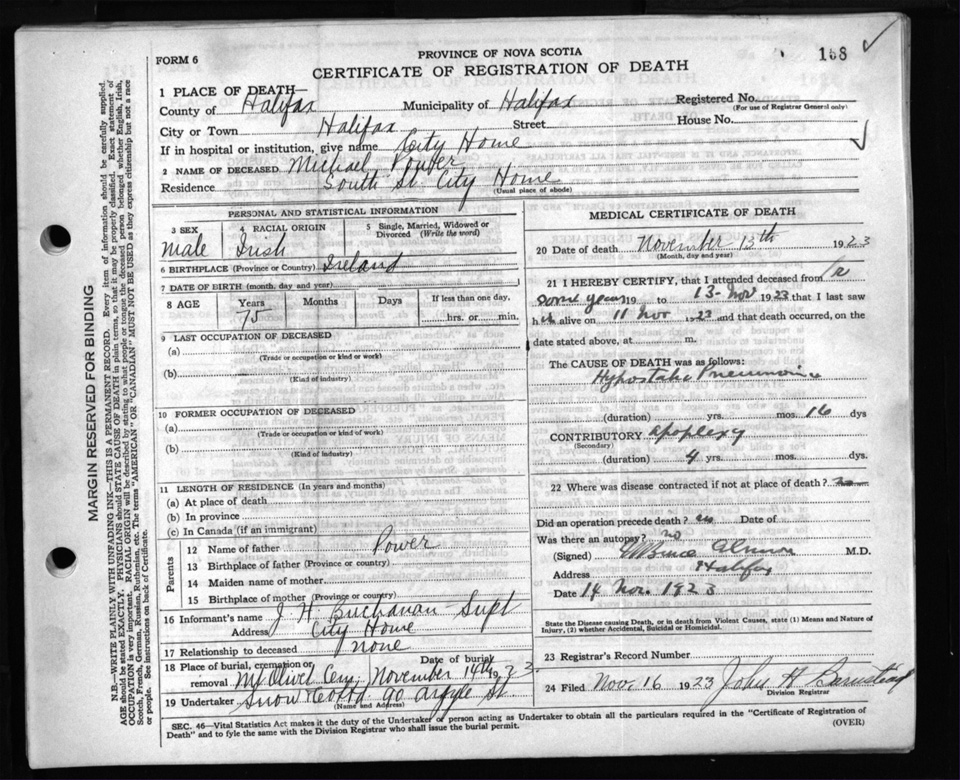 168 ✓
FORM 6
PROVINCE OF NOVA SCOTIA
CERTIFICATE OF REGISTRATION OF DEATH
1 PLACE OF DEATH—
County of Halifax Municipality of Halifax Registered No.
(For use of Registrar General only)
City or Town Halifax Street House No.
If in hospital or institution, give name City Home ✓
2 NAME OF DECEASED Michael Power
Residence South St. City Home
(Usual place of abode)
PERSONAL AND STATISTICAL INFORMATION
3 SEX 4 RACIAL ORIGIN 5 Single, Married, Widowed or Divorced (Write the word)
Male Irish
6 BIRTHPLACE (Province or Country) Ireland
7 DATE OF BIRTH (month, day and year)
8 AGE Years Months Days If less than one day,
75 hrs. or min.
9 LAST OCCUPATION OF DECEASED
(a)
(Trade or occupation or kind or work)
(b)
(Kind of industry)
10 FORMER OCCUPATION OF DECEASED
(a)
(Trade or occupation or kind of work)
(b)
(Kind of industry)
11 LENGTH OF RESIDENCE (In years and months)
(a) At place of death
(b) In province
(c) In Canada (if an immigrant)
Parents
12 Name of father Power
13 Birthplace of father (Province or country)
14 Maiden name of mother
15 Birthplace of mother (Province or country)
16 Informant's name J. H. Buchanan Supt
Address City Home
17 Relationship to deceased none
18 Place of burial, cremation or removal Mt Olivet Cem. Date of burial November 14th 1923
19 Undertaker Snow & Co Ltd 90 Argyle St
(Name and Address)
MEDICAL CERTIFICATE OF DEATH
20 Date of death November 13th 1923
(Month, day and year)
21 I HEREBY CERTIFY, that I attended deceased from
some years 19 to 13-Nov 1923 that I last saw
h alive on 11 Nov 1923 and that death occurred, on the
date stated above, at m.
The CAUSE OF DEATH was as follows:
Hypostatic Pneumonia
(duration) yrs. mos. 16 dys
CONTRIBUTORY apoplexy
(Secondary)
(duration) 4 yrs. mos. dys
22 Where was disease contracted if not at place of death?
Did an operation precede death? no Date of
Was there an autopsy? no
(Signed) Bruce Almon M.D.
Address Halifax
Date 14 Nov. 1923
State the Disease causing Death, or in death from Violent Causes, state (1) Means and Nature of
Injury, (2) whether Accidental, Suicidal or Homicidal.
23 Registrar's Record Number
24 Filed Nov. 16 1923 John H Barnstead
Division Registrar
SEC. 46—Vital Statistics Act makes it the duty of the Undertaker or person acting as Undertaker to obtain all the particulars required in the "Certificate of Registration of
Death" and to fyle the same with the Division Registrar who shall issue the burial permit. (OVER)
MARGIN RESERVED FOR BINDING
N.B.—WRITE PLAINLY WITH UNFADING INK—THIS IS A PERMANENT RECORD. Every item of information should be carefully supplied.
AGE should be stated EXACTLY. PHYSICIANS should STATE CAUSE OF DEATH in plain terms, so that it may be properly classified. Exact statement of
OCCUPATION is very important. RACIAL ORIGIN will be described by stating to what people or tongue the deceased person belonged whether English, Irish,
Scotch, French, German, Russian, Ruthenian, etc. The terms "AMERICAN" OR "CANADIAN" MUST NOT BE USED as they express citizenship but not a race
or people. See instructions on back of Certificate.